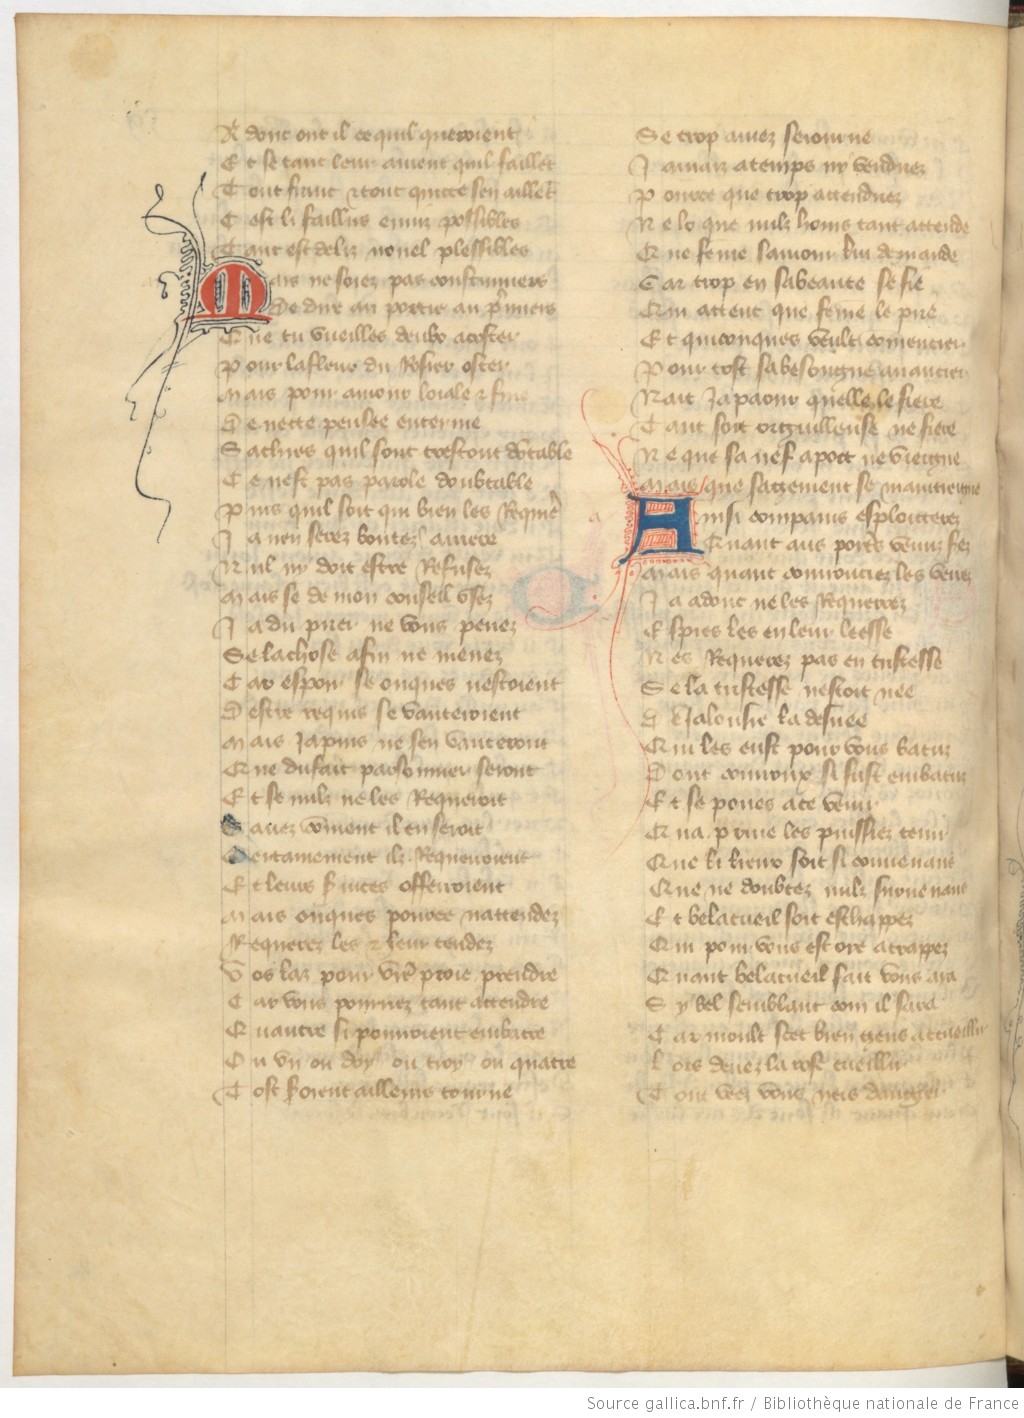 A donc ont il ce quil queroient
Et se tant leur avient quil faillent
Tout franc et tout quicte sen aillent
Cest li faillirs enviz possibles
Tant est deliz novel plessibles
Mais ne soiez pas coustumiers
De dire au portier au premiers
Que tu vueilles de lui acoster
Pour la fleur du Rosier oster
Mais pour amour loiale et fine
De necte pensee enterine
Sachies quil sont trestout dontable
Ce nest pas parole doubtable
Puis quil soit qui bien les Requiere
Ja nen serez boutez arriere
Nul ny doit estre Refusez
Mais se de mon conseil usez
Ja du prier ne vous penez
Se la chose a fin ne menez
Car espoir se onques nestoient
Destre requis se vanteroient
Mais Ja puis ne sen vanteront
Que du fait parsonnier seront
Et se nulz ne les Requeroit
Savez comment il en seroit
Certainement ilz Requerroient
Et leurs frinces offerroient
Mais onques pource nattendez
Requerez les et leur tendez
Vos laz pour vostre proie prendre
Car vous pourriez tant attendre
Quautre si pourroient embatre
Ou un ou doy ou troy ou quatre
Tost seroient ailleurs tourne
Se trop aviez seiourne
Jamaiz a temps ny vendriez
Pource que trop attendriez
Ne lo que nulz homs tant attende
Que feme samour lui demande
Car trop en sa beaute se fie
Qui attent que feme le prie
Et quiconques veult comencier
Pour tost sa besongne avancier
Nait Ja paour quelle le fiere
Tant soit orguilleuse ne fiere
Ne que sa nef a port ne viengne
Mais que sagement se maintiengne
Ainsi compains esploicterez
Quant aus portiers venuz serez
Mais quant courouciez les verrez
Ja adonc ne les Requerrez
Espies les en leur leesse
Nes Requerez pas en tristesse
Se la tristesse nestoit nee
De Jalousie la desvee
Qui les eust pour vous batuz
Dont courroux si fust embatuz
Et se poues a ce venir
Qua prive les puissiez tenir
Que li lieux soit si couvenans
Que ne doubtez nulz survenans
Et belacueil soit eschappez
Qui pour vous est ore atrappez
Quant belacueil fait vous aura
Sy bel semblant com il sara
Car moult scet bien gens acueillir
Lors devez la rose cueillir
Tout veez vous neis dangier